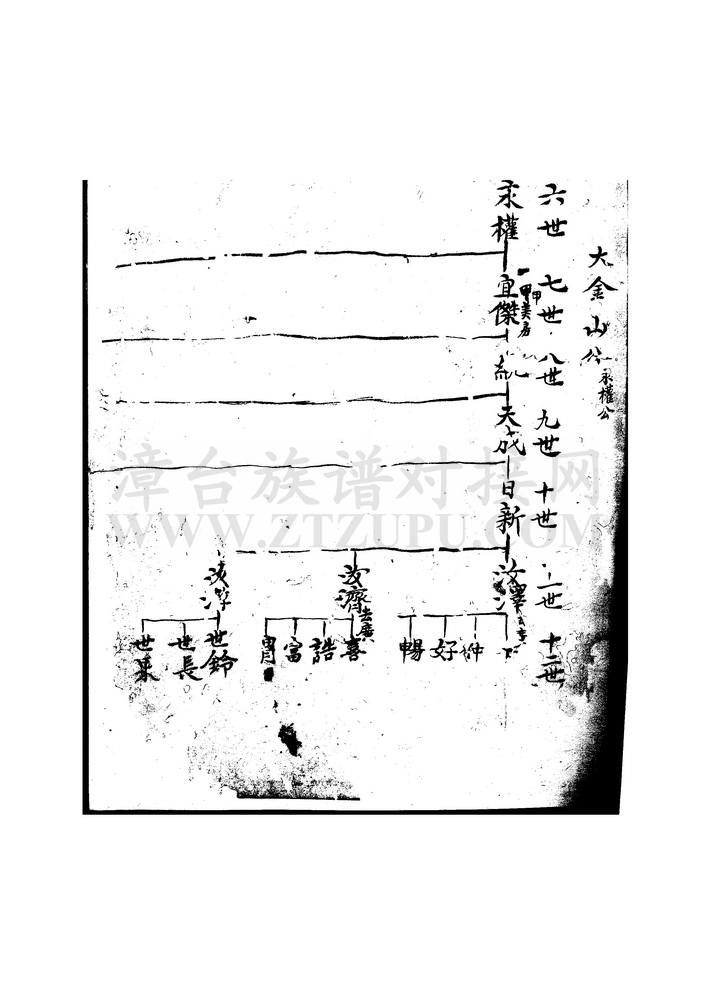 大金山
永權公
六世
七世
八世
九世
十世
世
十二世
永權
宜傑
美房
天成
日新
汝澤
汝濟
去廣
汝淳
仲
好
暢
喜
誥
富
胃
世鈴
世長
世
漳台族谱对接网
WWW.ZTZUPU.COM